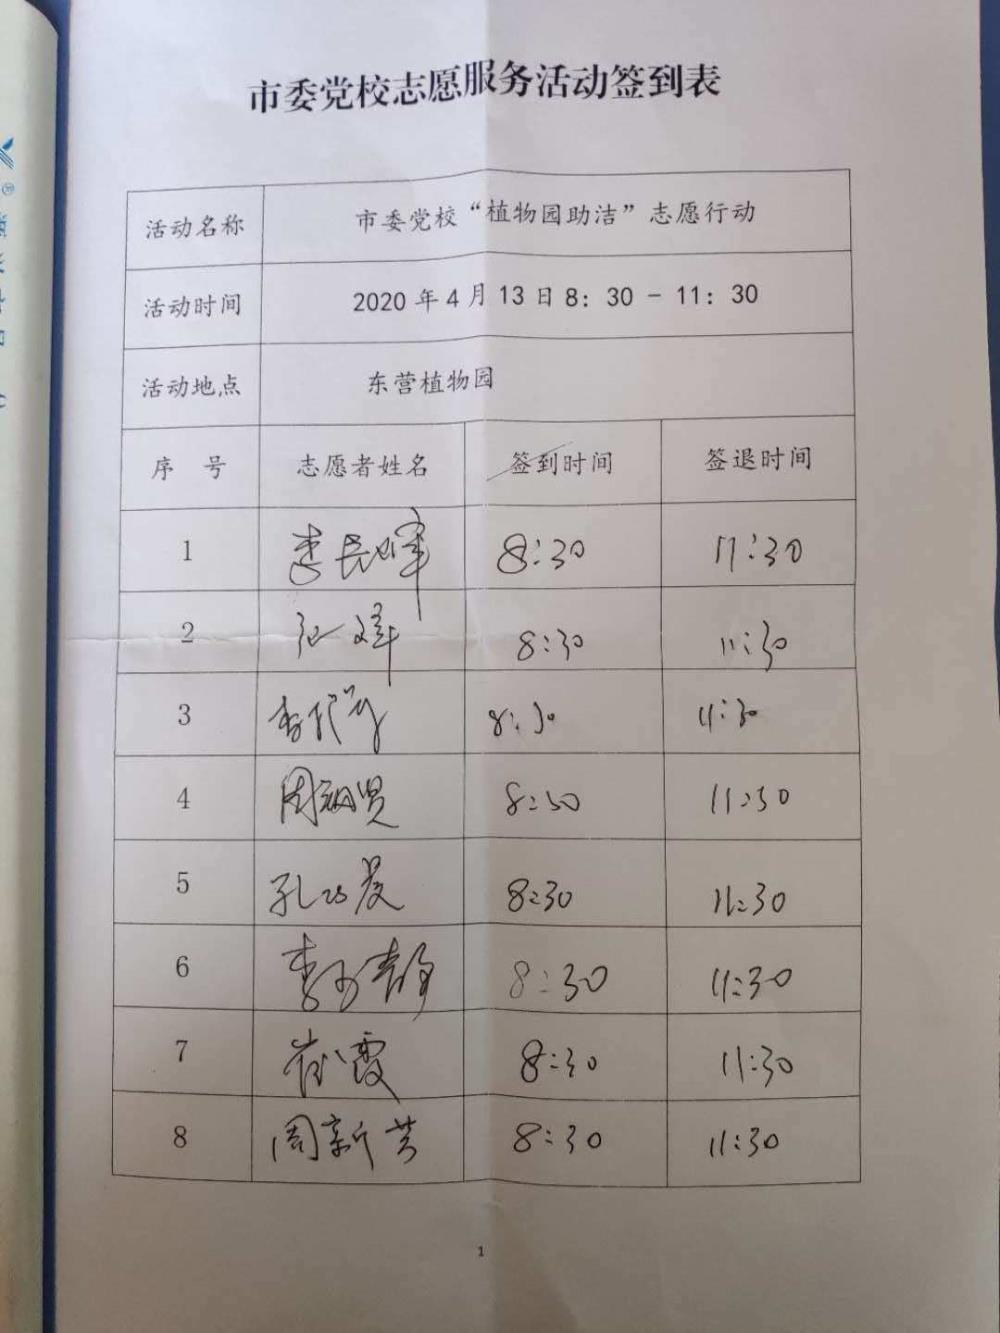 市委党校志愿服务活动签到表
活动名称 市委党校“植物园助洁”志愿行动
活动时间 2020年4月13日8：30－11：30
活动地点 东营植物园
序 号 志愿者姓名 签到时间 签退时间
1 李长峰 8:30 11:30
2 8:30 11:30
3 8:30 11:30
4 周 贤 8:30 11:30
5 孔 8:30 11:30
6 李 静 8:30 11:30
7 崔霞 8:30 11:30
8 周新芸 8:30 11:30
1